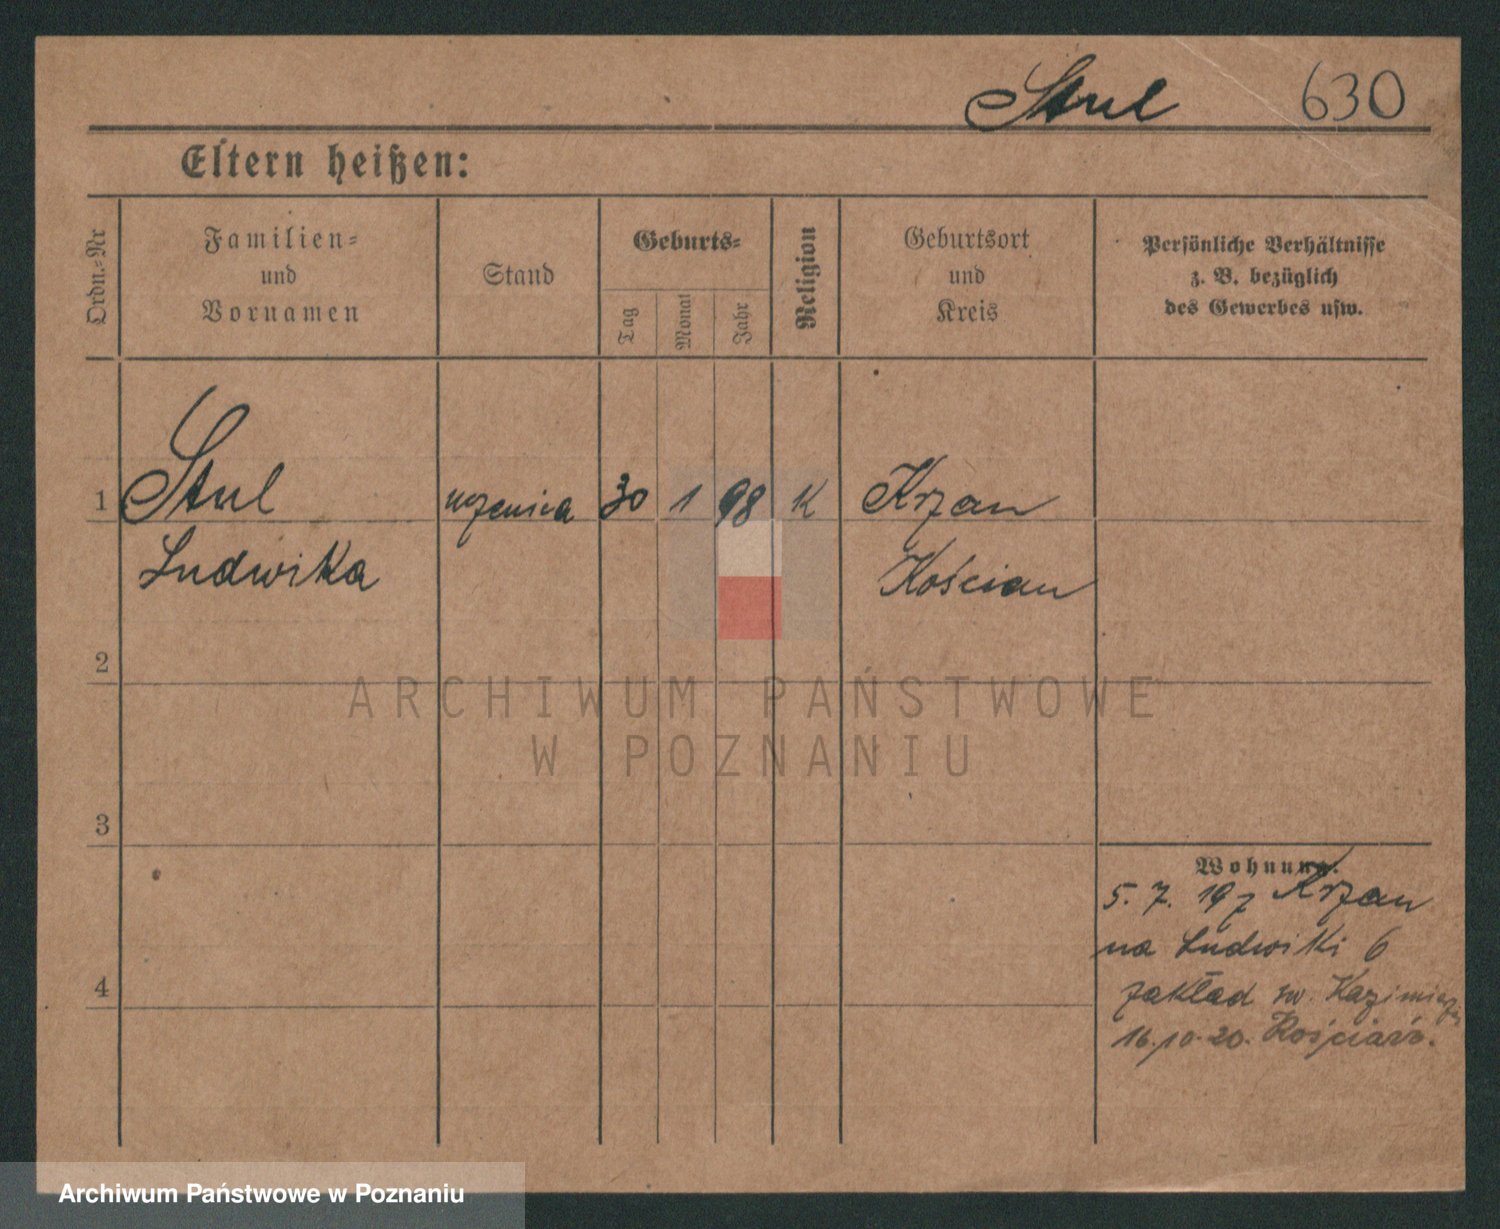 Stul 630
Eltern heißen:
Ordn.-Nr
Familien-
und
Vornamen
Stand
Geburts-
Tag
Monat
Jahr
Religion
Geburtsort
und
Kreis
Persönliche Verhältnisse
z. B. bezüglich
des Gewerbes usw.
1 Stul uczenica 30 1 98 K Krzan
Ludwika Kościan
2
3
4
Wohnung.
5. 7. 19 z Krzan
na Ludwiki 6
zakład św. Kazimierza
16.10.20. Kościań.
ARCHIWUM PAŃSTWOWE
W POZNANIU
Archiwum Państwowe w Poznaniu